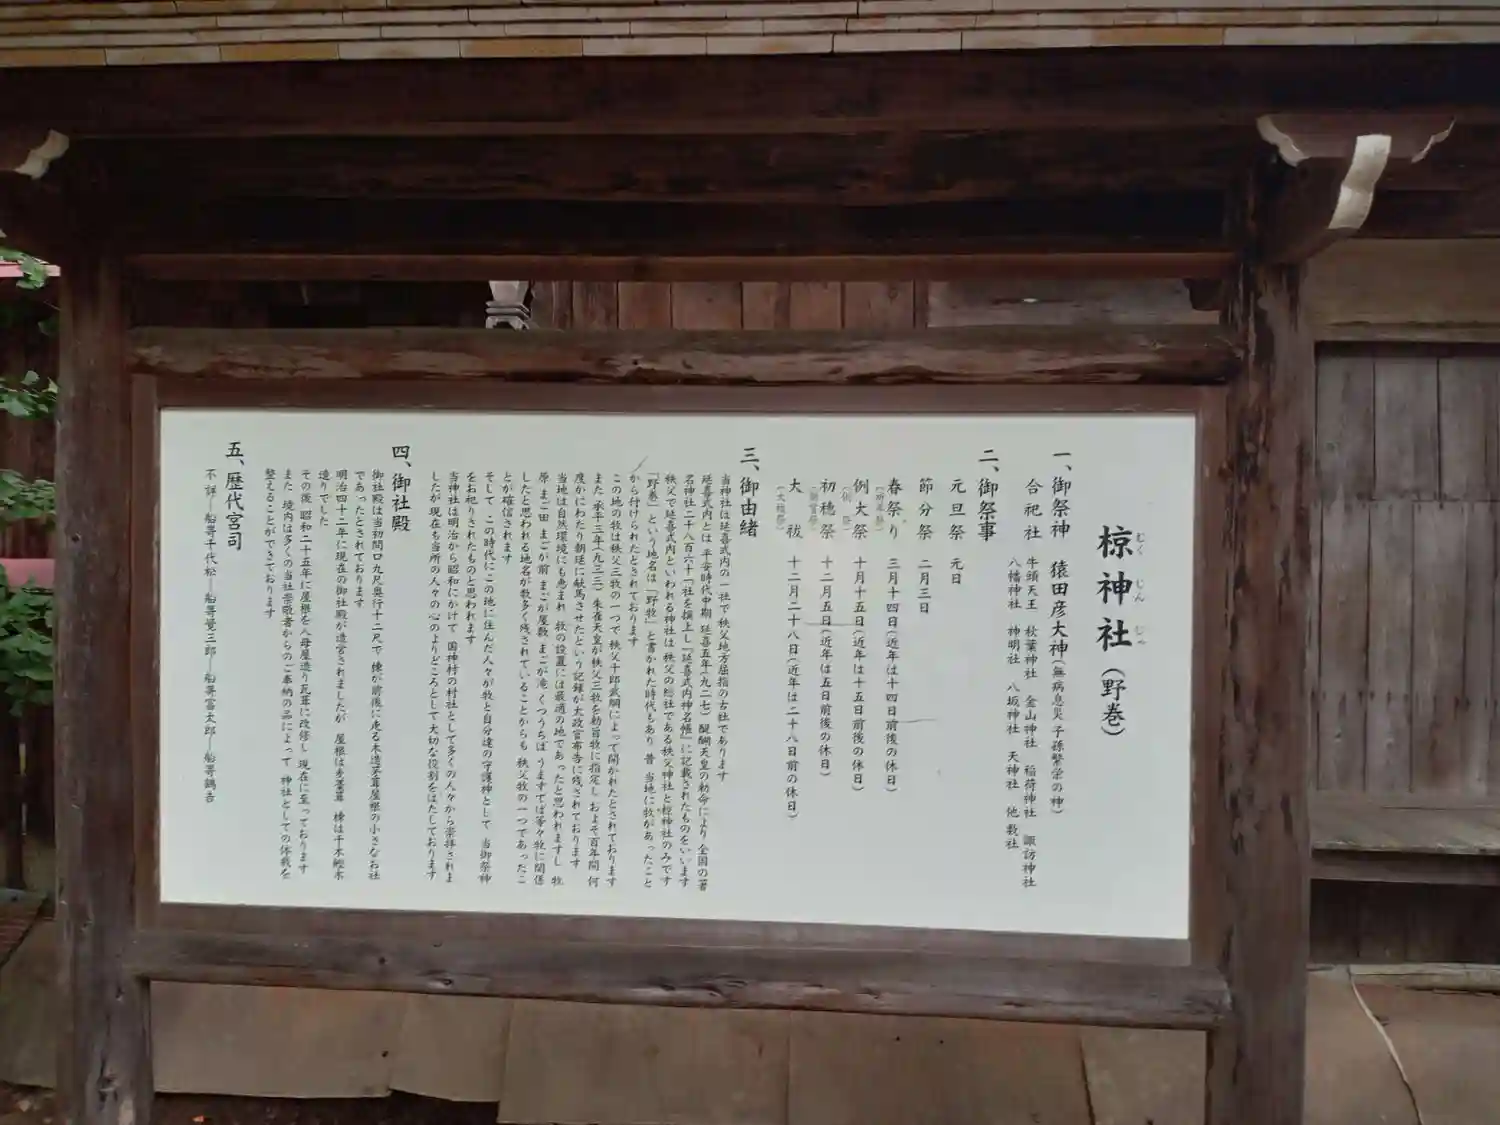 椋神社（野巻）
むく じん じゃ
一、御祭神 猿田彦大神（無病息災 子孫繁栄の神）
合祀社 牛頭天王 秋葉神社 金山神社 稲荷神社 諏訪神社
八幡神社 神明社 八坂神社 天神社 他数社
二、御祭事
元旦祭 元日
節分祭 二月三日
春祭り 三月十四日（近年は十四日前後の休日）
（祈年祭）
例大祭 十月十五日（近年は十五日前後の休日）
（例祭）
初穂祭 十二月五日（近年は五日前後の休日）
（新嘗祭）
大祓 十二月二十八日（近年は二十八日前の休日）
（大祓祭）
三、御由緒
当神社は延喜式内の一社で秩父地方屈指の古社であります
延喜式内とは 平安時代中期 延喜五年（九二七）醍醐天皇の勅命により 全国の著
名神社二千八百六十一社を撰上し『延喜式内神名帳』に記載されたものをいいます
秩父で延喜式内といわれる神社は 秩父の総社である秩父神社と椋神社のみです
「野巻」という地名は「野牧」と書かれた時代もあり 昔 当地に牧があったこと
から付けられたとされております
この地の牧は秩父三牧の一つで 秩父十郎武綱によって開かれたとされております
また 承平三年（九三三）朱雀天皇が秩父三牧を勅旨牧に指定し およそ百年間 何
度かにわたり朝廷に献馬させたという記録が太政官布告に残されております
当地は自然環境にも恵まれ 牧の設置には最適の地であったと思われますし 牧
原 まご田 まごが前 まごが屋敷 まごが滝 くつうちば うますてば等々牧に関係
したと思われる地名が数多く残されていることからも 秩父牧の一つであったこ
とが確信されます
そして、この時代にこの地に住んだ人々が牧と自分達の守護神として 当御祭神
をお祀りされたものと思われます
当神社は明治から昭和にかけて 国神村の村社として多くの人々から崇拝されま
したが 現在も当所の人々の心のよりどころとして大切な役割をはたしております
四、御社殿
御社殿は当初間口九尺奥行十二尺で 棟が前後に走る木造茅葺屋根の小さなお社
であったとされております
明治四十二年に現在の御社殿が造営されましたが 屋根は麦藁葺 棟は千木鰹木
造りでした
その後 昭和二十五年に屋根を入母屋造り瓦葺に改修し 現在に至っております
また 境内は多くの当社崇敬者からのご奉納の品によって 神社としての体裁を
整えることができております
五、歴代宮司
不詳―船崎千代松―船崎管三郎―船崎富太郎―船崎鶴吉